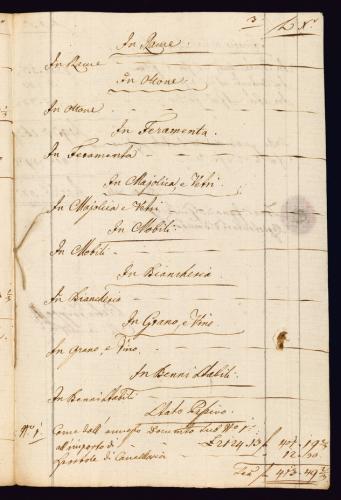 3
In Rame
In Rame
In Ottone
In Ottone
In Feramenta
In Feramenta
In Majolica, e Vetri
In Majolica e Vetri
In Mobili
In Mobili
In Biancheria
In Biancheria
In Grano, e Vino
In Grano, e Vino
In Benni Stabili
In Benni Stabili
Stato Passivo
Come dall' annesso Documento sub N° 1°
all'importo di £ 2124.13
di Cancelleria 12